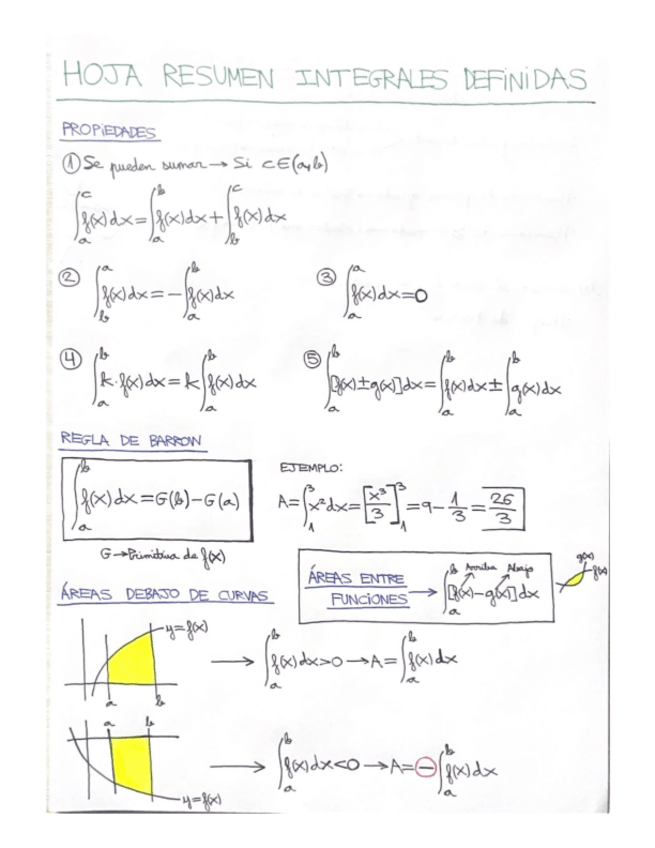 HOJA RESUMEN INTEGRALES DEFINIDAS
PROPIEDADES
① Se pueden sumar → Si c∈(a,b)
∫_a^c f(x)dx = ∫_a^b f(x)dx + ∫_b^c f(x)dx
② ∫_b^a f(x)dx = -∫_a^b f(x)dx
③ ∫_a^a f(x)dx = 0
④ ∫_a^b k·f(x)dx = k∫_a^b f(x)dx
⑤ ∫_a^b [f(x)±g(x)]dx = ∫_a^b f(x)dx ± ∫_a^b g(x)dx
REGLA DE BARROW
∫_a^b f(x)dx = G(b)-G(a)
G→Primitiva de f(x)
EJEMPLO:
A = ∫_1^3 x²dx = [x³/3]_1^3 = 9 - 1/3 = 26/3
ÁREAS ENTRE
FUNCIONES → ∫_a^b [f(x)-g(x)]dx
Arriba Abajo
g(x)
f(x)
ÁREAS DEBAJO DE CURVAS
y=f(x)
a b
→ ∫_a^b f(x)dx>0 → A = ∫_a^b f(x)dx
a b
y=f(x)
→ ∫_a^b f(x)dx<0 → A = -∫_a^b f(x)dx